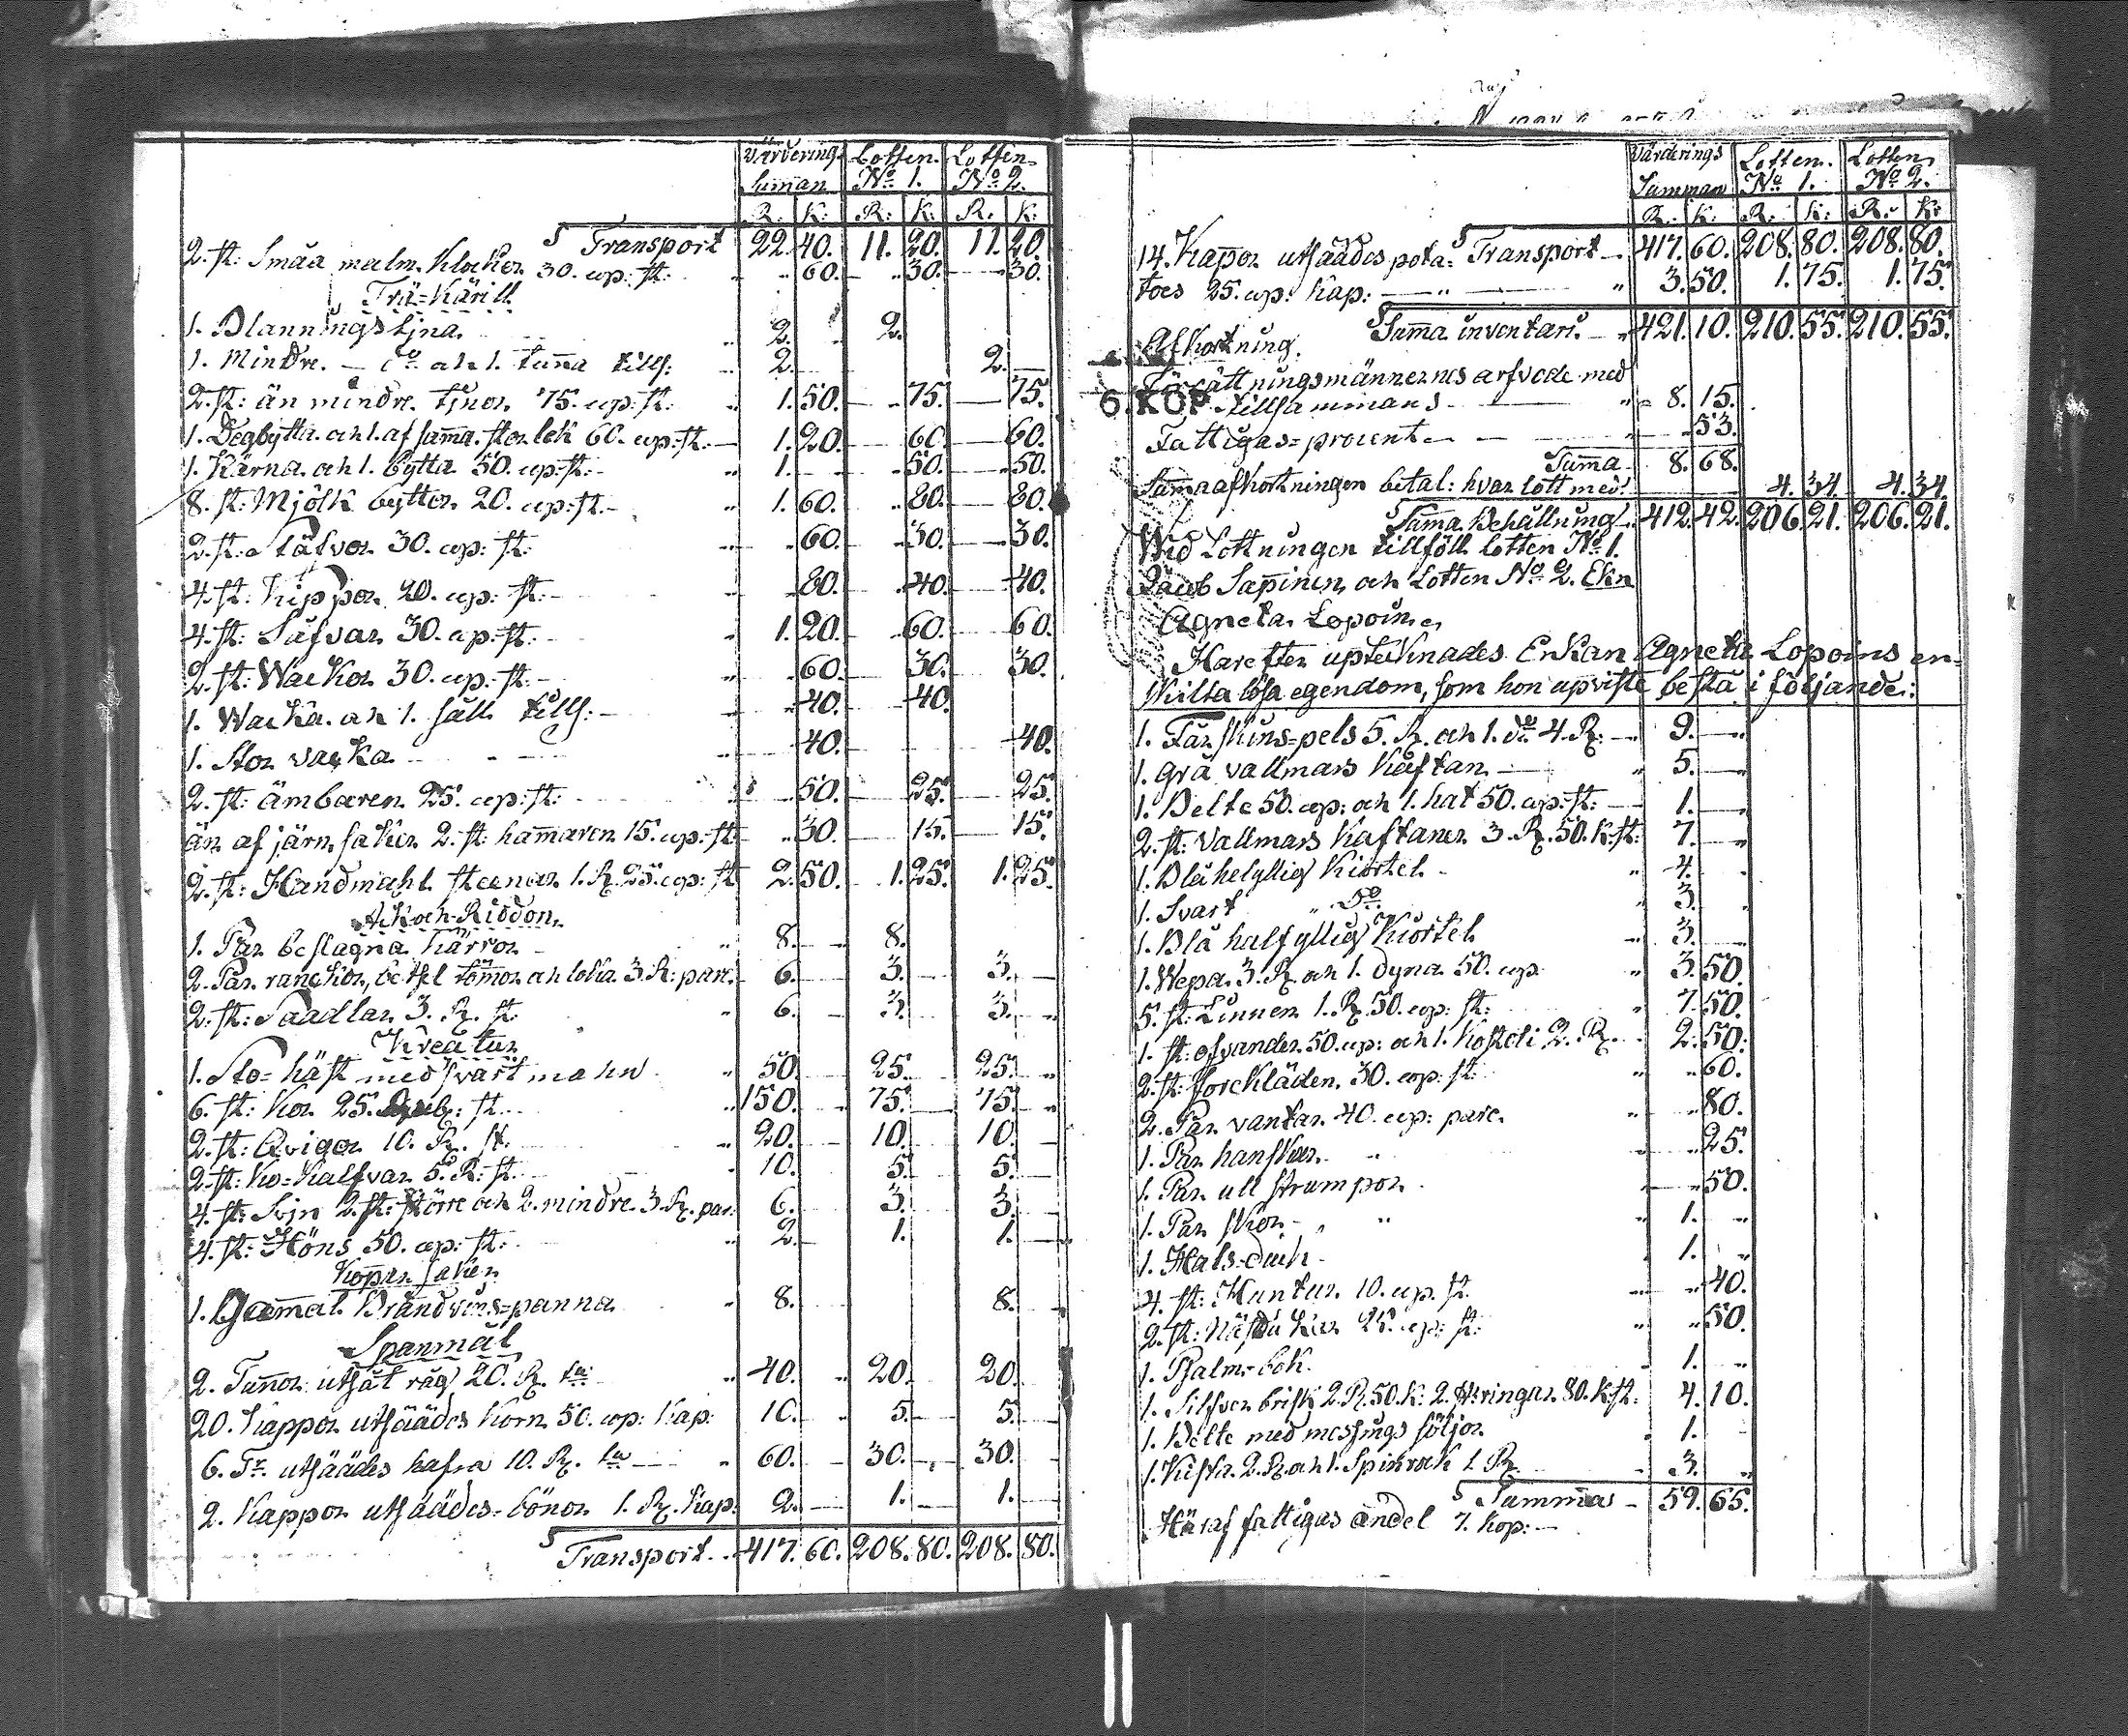 Värderings Lotten Lotten
summan No 1. No 2.
R. K: R: K: R. K:
S Transport 22. 40. 11. 20. 11. 20.
2. st: Småa malm Klockor 30. cop: st: 60. 30. 30.
Trä=Kärill
1. Blannings tjna 2. 2.
1. Mindre do och 1. tunna tills: 2. 2.
2. st: än mindre tjnor 75. cop: st: 1. 50. 75. 75.
1. Degbytta och 1. af samma storlek 60. cop: st: 1. 20. 60. 60.
1. Kärna och 1. bytta 50. cop: st: 1. 50. 50.
8. st: Mjölk byttor 20. cop: st: 1. 60. 80. 80.
2. st: Stäfvor 30. cop: st: 60. 30. 30.
4. st: Kippor 20. cop: st: 80. 40. 40.
4. st: Säfvar 30. cop: st: 1. 20. 60. 60.
2. st: Wackor 30. cop: st: 60. 30. 30.
1. Wacka och 1. såll tills: 40. 40.
1. Stor vacka 40. 40.
2. st: ämbaren 25. cop: st: 50. 25. 25.
än af järn saker 2. st: hamaren 15. cop: st: 30. 15. 15.
2. st: Handmahl steenar 1. R. 25. cop: st 2. 50. 1. 25. 1. 25.
Åk och Riddon
1. Par beslagna kärror 8. 8.
2. Par ranckor, betsel tömor och lokia 3. R: pare. 6. 3. 3.
2. st: Saadlar 3. R. st. 6. 3. 3.
Kreatur
1. Sto=häst med svart mahn 50. 25. 25.
6. st: Kor 25. Rub: st. 150. 75. 75.
2. st: Qvigor 10. R. st. 20. 10. 10.
2. st: Ko=Kalfvar 5. R: st. 10. 5. 5.
4. st: Svjn 2. st: större och 2. mindre 3. R. par. 6. 3. 3.
4. st: Höns 50. cop: st: 2. 1. 1.
Koppar saker
1. Gammal Brändvins=panna 8. 8.
Spanmål
2. Tunnor utsåt råg 20. R. ta 40. 20. 20.
20. Kappor utsäädes Korn 50. cop: Kap: 10. 5. 5.
6. Tr utsäädes hafra 10. R. ta 60. 30. 30.
2. Kappor utsäädes=bönor 1. R. Kap: 2. 1. 1.
S Transport 417. 60. 208. 80. 208. 80.
Värderings Lotten Lotten
Summan No 1. No 2.
R. K: R: K: R. K:
S Transport 417. 60. 208. 80. 208. 80.
14. Kappor utsäädes pota=
toes 25. cop: Kap: 3. 50. 1. 75. 1. 75.
S Summa inventari 421. 10. 210. 55. 210. 55.
Afkortning.
Förrättningsmännernes arfvode med
6. KOP. tillsammans 8. 15.
Fattigas=procent 53.
Summa 8. 68.
Samma afkortningen betal: hvar lott med 4. 34. 4. 34.
S Summa Behållning 412. 42. 206. 21. 206. 21.
Wid Lottningen tillföll lotten No 1.
Jacob Sapinen, och Lotten No 2. Ekn
Agneta Lopoin.
Harefter uptecknades Enkan Agneta Lopoins en=
skilta lösa egendom, som hon upviste bestå i följande:
1. Får skins=pels 5. R. och 1. do 4. R: 9.
1. grå vallmars Kaftan 5.
1. Belte 50. cop: och 1. hat 50. cop: st: 1.
2. st: Vallmars Kaftaner 3. R. 50. K: st: 7.
1. Blå helyllig Kiortel 4.
1. Svart Do 3.
1. Blå halfyllig Kiortel 3.
1. Wepa 3. R. och 1. dyna 50. cop 3. 50.
5. st: Linnen 1. R. 50. cop: st: 7. 50.
1. st: 50. cop: och 1. 2. R. 2. 50.
2. st: förckläden 30. cop: st: 60.
2. Par vantar 40. cop: pare. 80.
1. Par hanskar 25.
1. Par ull strumpor 50.
1. Par skor 1.
1. Hals=duck 1.
4. st: Huntur 10. cop. st. 40.
2. st: Näsdukar 25. cop: st: 50.
1. Psalm=bok 1.
1. Silfver brisk 2. R. 50. K: 2. st: ringar 80. K: st: 4. 10.
1. Belte med messings söljor 1.
1. Kista 2. R. och 1. Spinrock 1. R. 3.
S Summas 59. 65.
Häraf fattigas andel 7. kop: